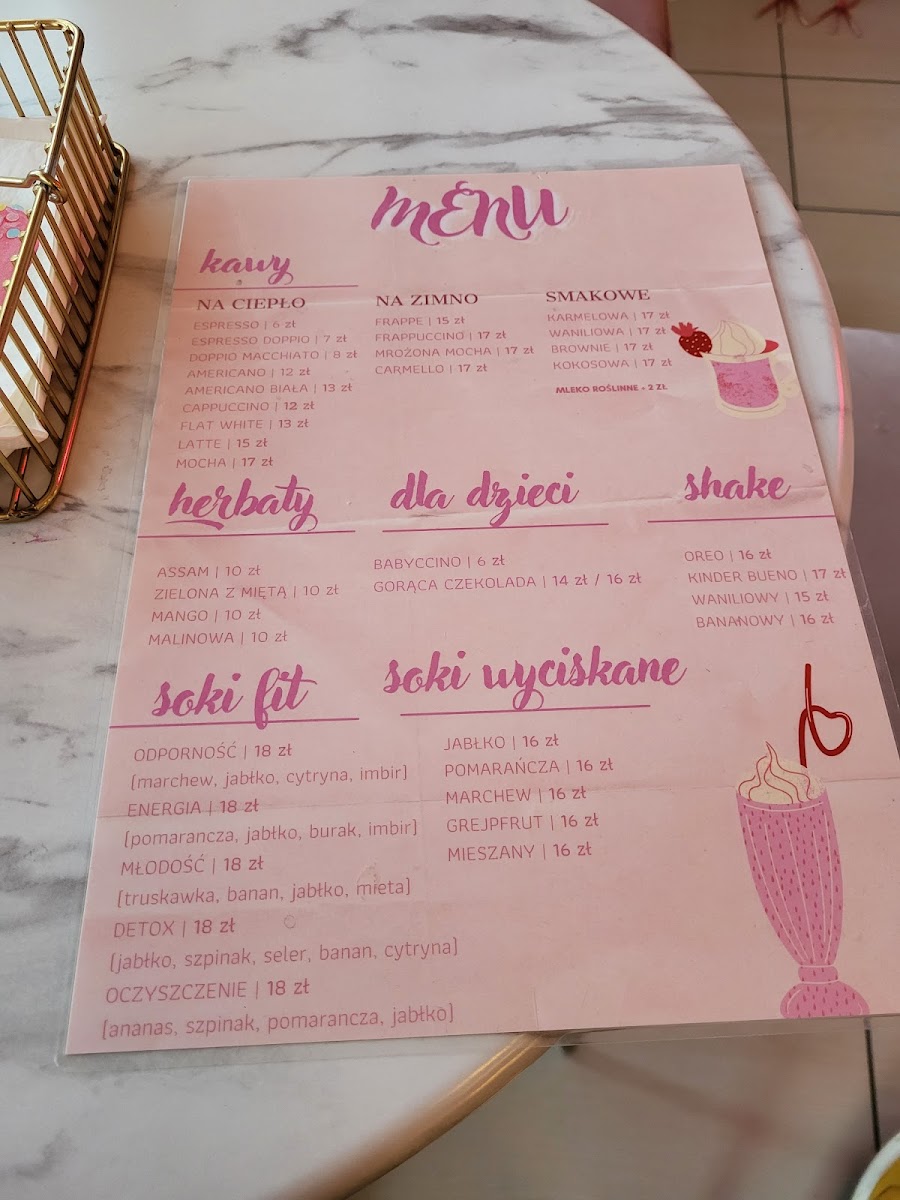 MENU
kawy
NA CIEPŁO
ESPRESSO | 6 zł
ESPRESSO DOPPIO | 7 zł
DOPPIO MACCHIATO | 8 zł
AMERICANO | 12 zł
AMERICANO BIAŁA | 13 zł
CAPPUCCINO | 12 zł
FLAT WHITE | 13 zł
LATTE | 15 zł
MOCHA | 17 zł
NA ZIMNO
FRAPPE | 15 zł
FRAPPUCCINO | 17 zł
MROŻONA MOCHA | 17 zł
CARMELLO | 17 zł
SMAKOWE
KARMELOWA | 17 zł
WANILIOWA | 17 zł
BROWNIE | 17 zł
KOKOSOWA | 17 zł
MLEKO ROŚLINNE + 2 ZŁ
herbaty
ASSAM | 10 zł
ZIELONA Z MIĘTĄ | 10 zł
MANGO | 10 zł
MALINOWA | 10 zł
dla dzieci
BABYCCINO | 6 zł
GORĄCA CZEKOLADA | 14 zł / 16 zł
shake
OREO | 16 zł
KINDER BUENO | 17 zł
WANILIOWY | 15 zł
BANANOWY | 16 zł
soki fit
ODPORNOŚĆ | 18 zł
[marchew, jabłko, cytryna, imbir]
ENERGIA | 18 zł
[pomarancza, jabłko, burak, imbir]
MŁODOŚĆ | 18 zł
[truskawka, banan, jabłko, mieta]
DETOX | 18 zł
[jabłko, szpinak, seler, banan, cytryna]
OCZYSZCZENIE | 18 zł
[ananas, szpinak, pomarancza, jabłko]
soki wyciskane
JABŁKO | 16 zł
POMARAŃCZA | 16 zł
MARCHEW | 16 zł
GREJPFRUT | 16 zł
MIESZANY | 16 zł